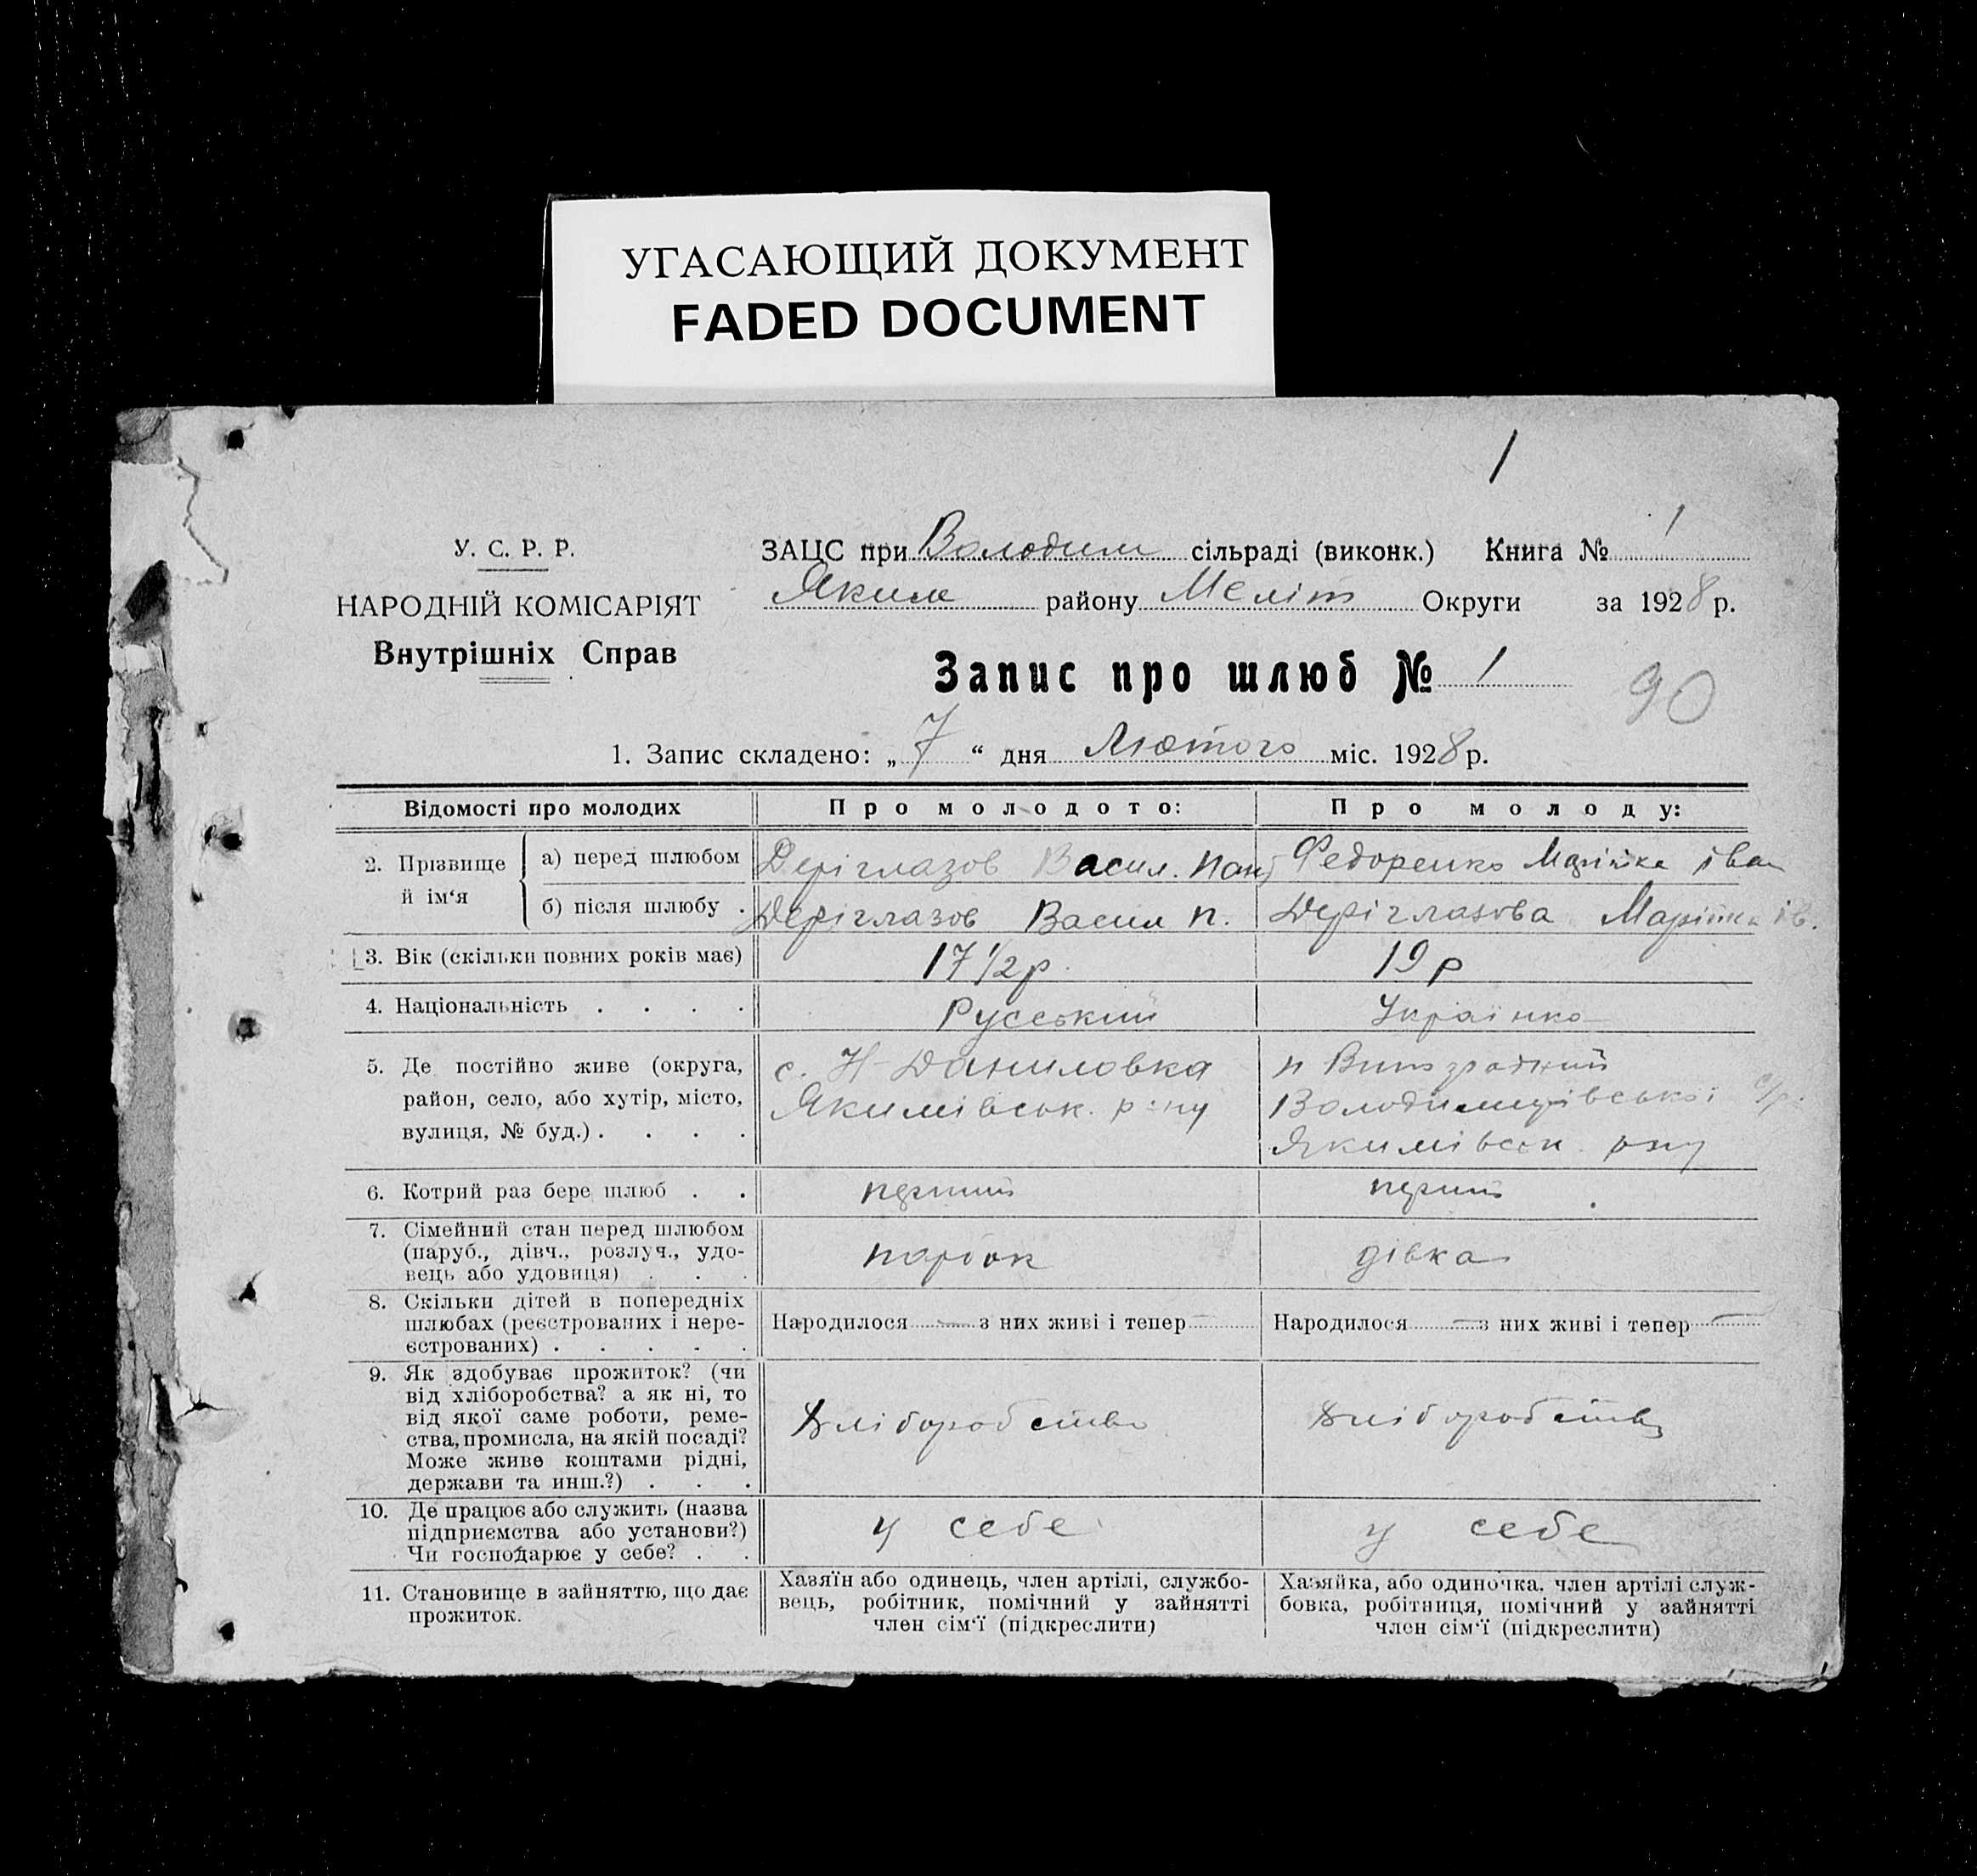 УГАСАЮЩИЙ ДОКУМЕНТ
FADED DOCUMENT
1
У. С. Р. Р.
НАРОДНІЙ КОМІСАРІЯТ
Внутрішніх Справ
ЗАЦС при Володим сільраді (виконк.) Книга № 1
Яким району Меліт Округи за 1928 р.
Запис про шлюб № 1
90
1. Запис складено: „7“ дня Лютого міс. 1928 р.
Відомості про молодих Про молодото: Про молоду:
2. Прізвище й ім‘я
а) перед шлюбом Деріглазов Васил. Пант Федоренко Марійка Іван
б) після шлюбу . Деріглазов Васил П. Деріглазова Марійка Ів.
3. Вік (скільки повних років має) 17 1/2 р. 19 р
4. Національність . . . . Русський Українка
5. Де постійно живе (округа,
район, село, або хутір, місто,
вулиця, № буд.) . . . .
с. Н-Даниловка
Якимівськ. р-ну
п Виноградний
Володимирівської с/р.
Якимівськ. рну
6. Котрий раз бере шлюб . . перший перший
7. Сімейний стан перед шлюбом
(паруб., дівч., розлуч., удо-
вець або удовиця) . . .
парубок дівка
8. Скільки дітей в попередніх
шлюбах (реєстрованих і нере-
єстрованих) . . . . .
Народилося — з них живі і тепер —
Народилося — з них живі і тепер —
9. Як здобуває прожиток? (чи
від хліборобства? а як ні, то
від якої саме роботи, реме-
ства, промисла, на якій посаді?
Може живе коштами рідні,
держави та инш.?) . . .
Хліборобство Хліборобство
10. Де працює або служить (назва
підприємства або установи?)
Чи господарює у себе? . .
у себе у себе
11. Становище в зайняттю, що дає
прожиток.
Хазяїн або одинець, член аргілі, службо-
вець, робітник, помічний у зайнятті
член сім‘ї (підкреслити)
Хазяйка, або одиночка. член артілі служ-
бовка, робітниця, помічний у зайнятті
член сім‘ї (підкреслити)